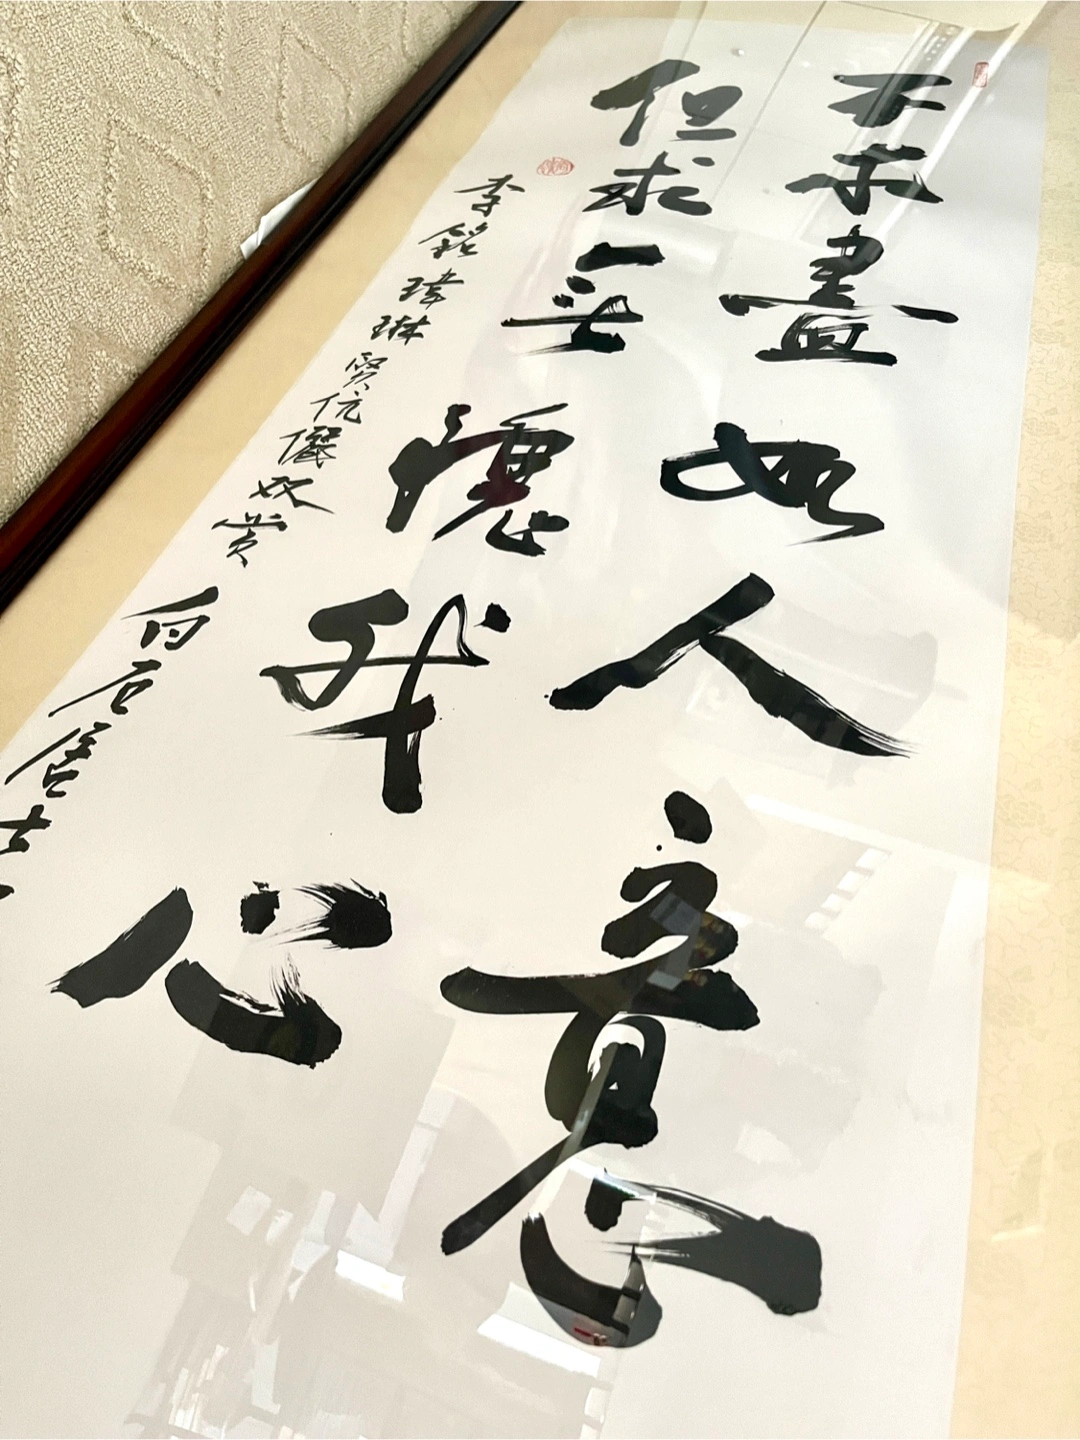 不求盡如人意
但求無愧我心
李銘瑋琳賢伉儷双賞
白石居士